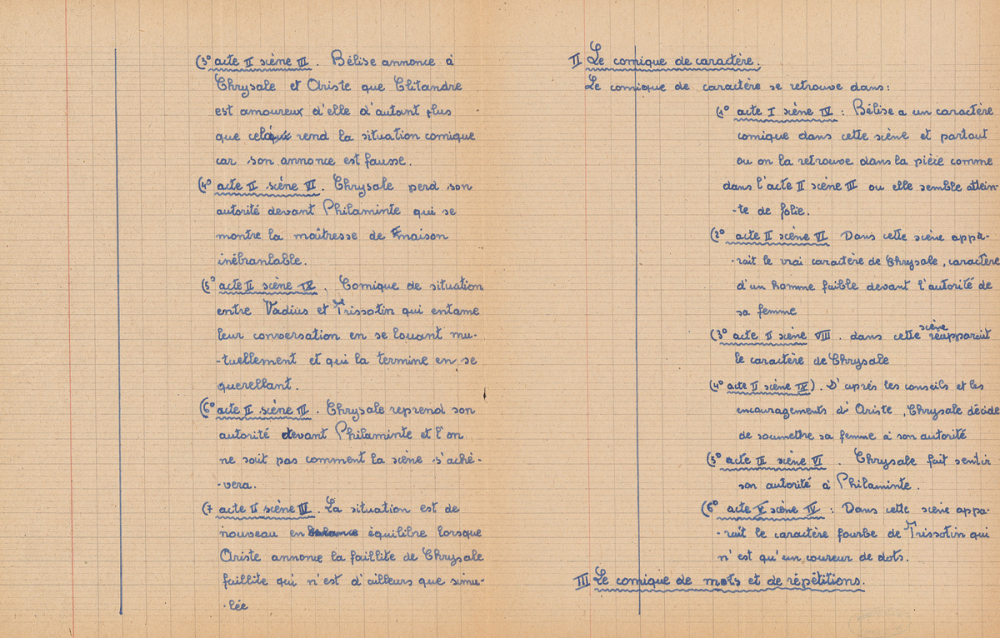 (3° acte II scène III. Bélise annonce à
Chrysale et Ariste que Clitandre
est amoureux d'elle d'autant plus
que cela rend la situation comique
car son annonce est fausse.
(4° acte II scène VI. Chrysale perd son
autorité devant Philaminte qui se
montre la maîtresse de maison
inébranlable.
(5° acte II scène IV. Comique de situation
entre Vadius et Trissotin qui entame
leur conversation en se louant mu-
-tuellement et qui la termine en se
querellant.
(6° acte II scène III. Chrysale reprend son
autorité devant Philaminte et l'on
ne sait pas comment la scène s'achè-
-vera.
(7 acte II scène III. La situation est de
nouveau en balance équilibre lorsque
Ariste annonce la faillite de Chrysale
faillite qui n'est d'ailleurs que simu-
-lée
II Le comique de caractère.
Le comique de caractère se retrouve dans:
(1° acte I scène IV : Bélise a un caractère
comique dans cette scène et partout
ou on la retrouve dans la pièce comme
dans l'acte II scène III ou elle semble attein-
-te de folie.
(2° acte II scène VI Dans cette scène appa-
-rait le vrai caractère de Chrysale, caractère
d'un homme faible devant l'autorité de
sa femme
(3° acte II scène VIII. dans cette scène réapparait
le caractère de Chrysale
(4° acte II scène IV). D'après les conseils et les
encouragements d'Ariste, Chrysale décide
de soumettre sa femme à son autorité
(5° acte II scène VI. Chrysale fait sentir
son autorité à Philaminte.
(6° acte V scène IV : Dans cette scène appa-
-rait le caractère fourbe de Trissotin qui
n'est qu'un coureur de dots.
III Le comique de mots et de répétitions.